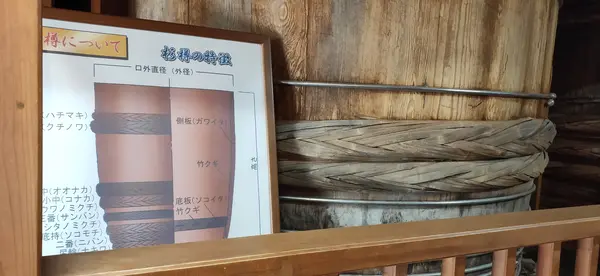 樽について
杉樽の特徴
口外直径(外径)
ハチマキ)
クチノワ)
側板(ガワイタ)
竹クギ
中(オオナカ)
小中(コナカ)
ワノミクチ)
三番(サンバン)
シタノミクチ)
底持(ソコモチ)
二番(ニバン)
底板(ソコイタ)
竹クギ